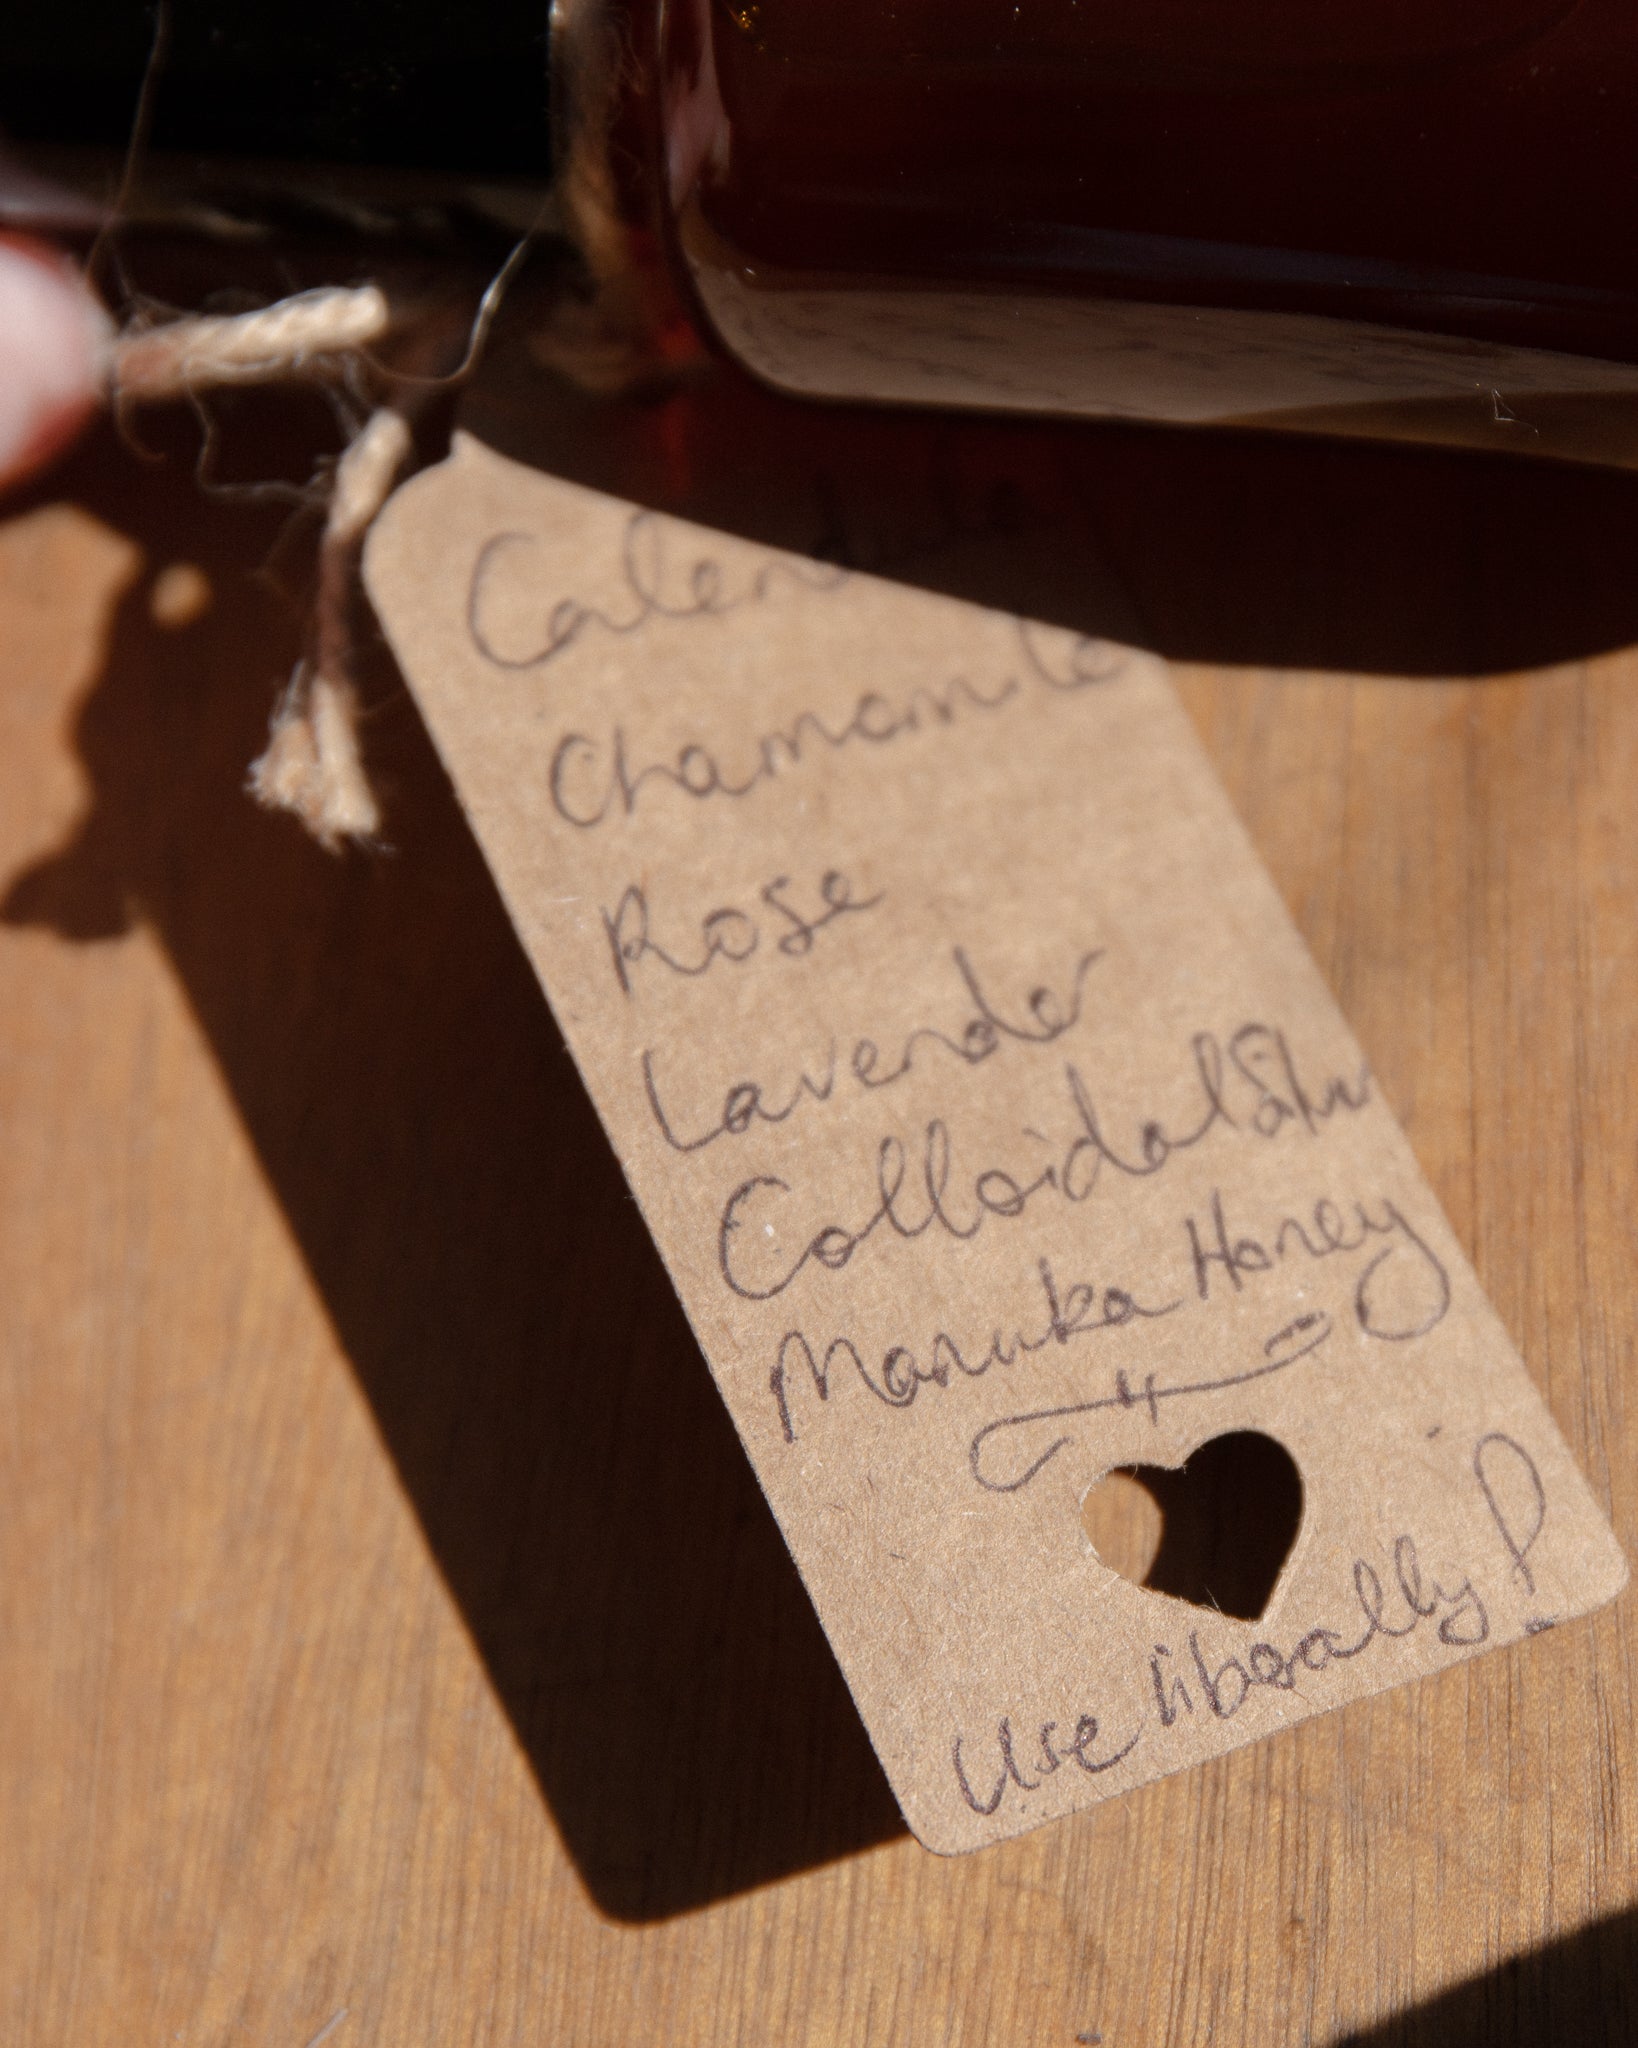 Calendula
Chamomile
Rose
Lavender
Colloidal Silver
Manuka Honey
Use liberally!